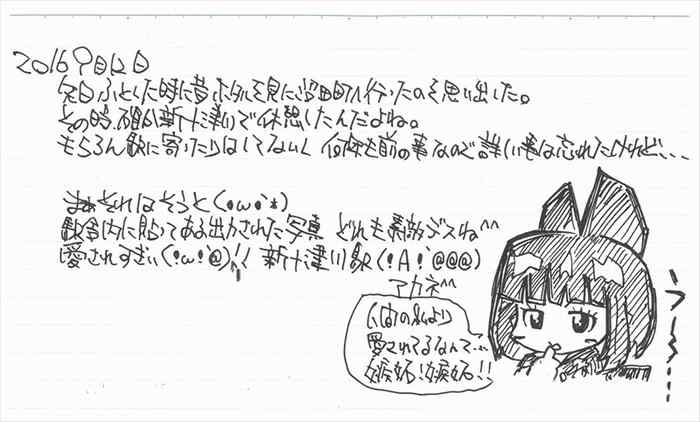 2016 9月12日
先日ふとした時に昔ホタルを見に沼田町へ行ったのを思い出した。
その時、確か新十津川で休憩したんだよね。
もちろん駅に寄ったりはしてないし 何年も前の事なので詳しい事は忘れたけれど、、、
まぁそれはそうと(・ω・*)
駅舎内に貼ってある出力された写真 どれも素敵デスね^^
愛されすぎぃ(・ω・@)!! 新十津川駅(・A・@@@)
アカネ^^
愛されてるなんて…
嫉妬!嫉妬!!